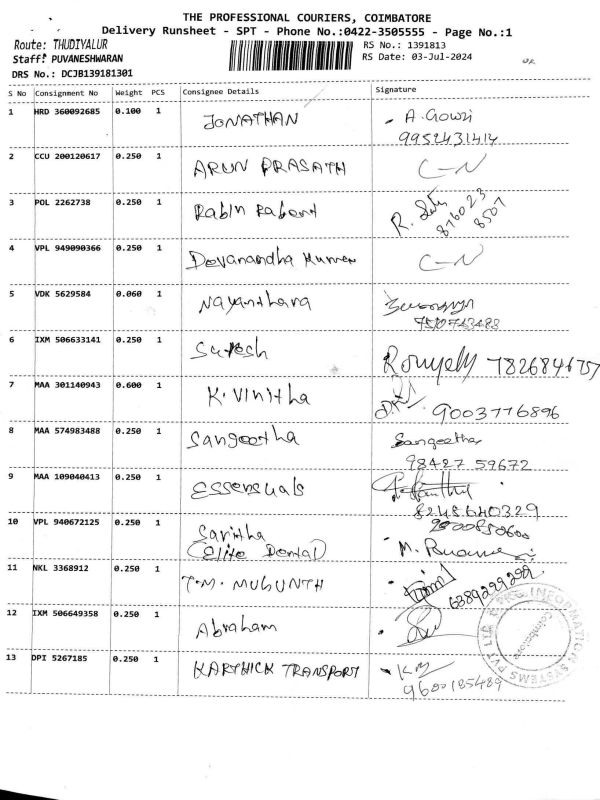 THE PROFESSIONAL COURIERS, COIMBATORE
Delivery Runsheet - SPT - Phone No.:0422-3505555 - Page No.:1
Route: THUDIYALUR
RS No.: 1391813
Staff: PUVANESHWARAN
RS Date: 03-Jul-2024
DRS No.: DCJB139181301
S No Consignment No Weight PCS Consignee Details Signature
1 HRD 360092685 0.100 1 JONATHAN A. Gowri
9952431414
2 CCU 200120617 0.250 1 ARUN PRASATH C-N
3 POL 2262738 0.250 1 Rabin Rabent R.
876023
8507
4 VPL 949090366 0.250 1 Devanandha Kumar C-N
5 VDK 5629584 0.060 1 Nayanthara
7510743488
6 IXM 506633141 0.250 1 Suresh 7826846757
7 MAA 301140943 0.600 1 K. Vinitha
9003776896
8 MAA 574983488 0.250 1 Sangeetha Sangeetha
98427 59672
9 MAA 109040413 0.250 1 Essensuals
8248640329
10 VPL 940672125 0.250 1 Saritha
(Elite Dental) M.
11 NKL 3368912 0.250 1 T.M. MUGUNTH
6389299292
12 IXM 506649358 0.250 1 Abraham
13 DPI 5267185 0.250 1 KARTHICK TRANSPORT KM
9600185489
INFORMATION SYSTEMS PVT LTD
Coimbatore